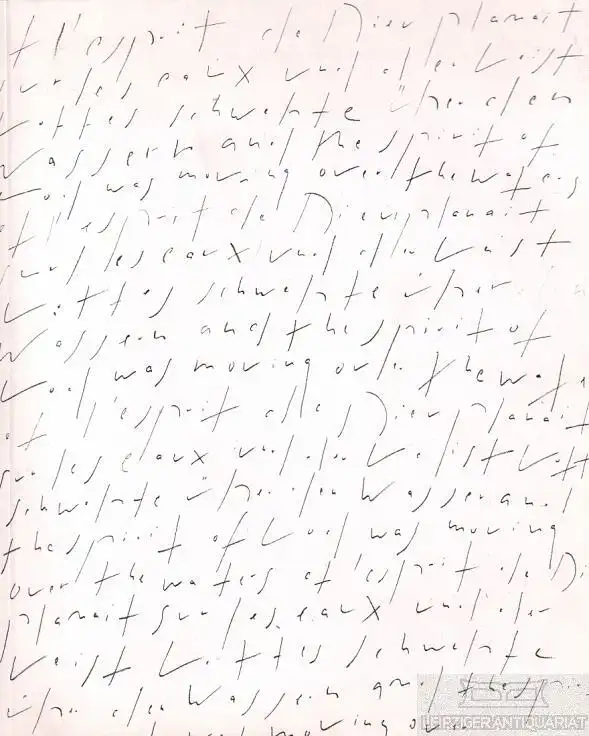 et l'esprit de Dieu planait
sur les eaux und der Geist
Gottes schwebte über den
Wassern and the spirit of
God was moving over the waters
et l'esprit de Dieu planait
sur les eaux und der Geist
Gottes schwebte über
Wassern and the spirit of
God was moving over the wate
et l'esprit de Dieu planait
sur les eaux und der Geist Gott
schwebte über den Wasser and
the spirit of God was moving
over the waters et l'esprit de Di
planait sur les eaux und der
Geist Gottes schwebte
über den Wassern and the spi
moving over
LEIPZIGER ANTIQUARIAT